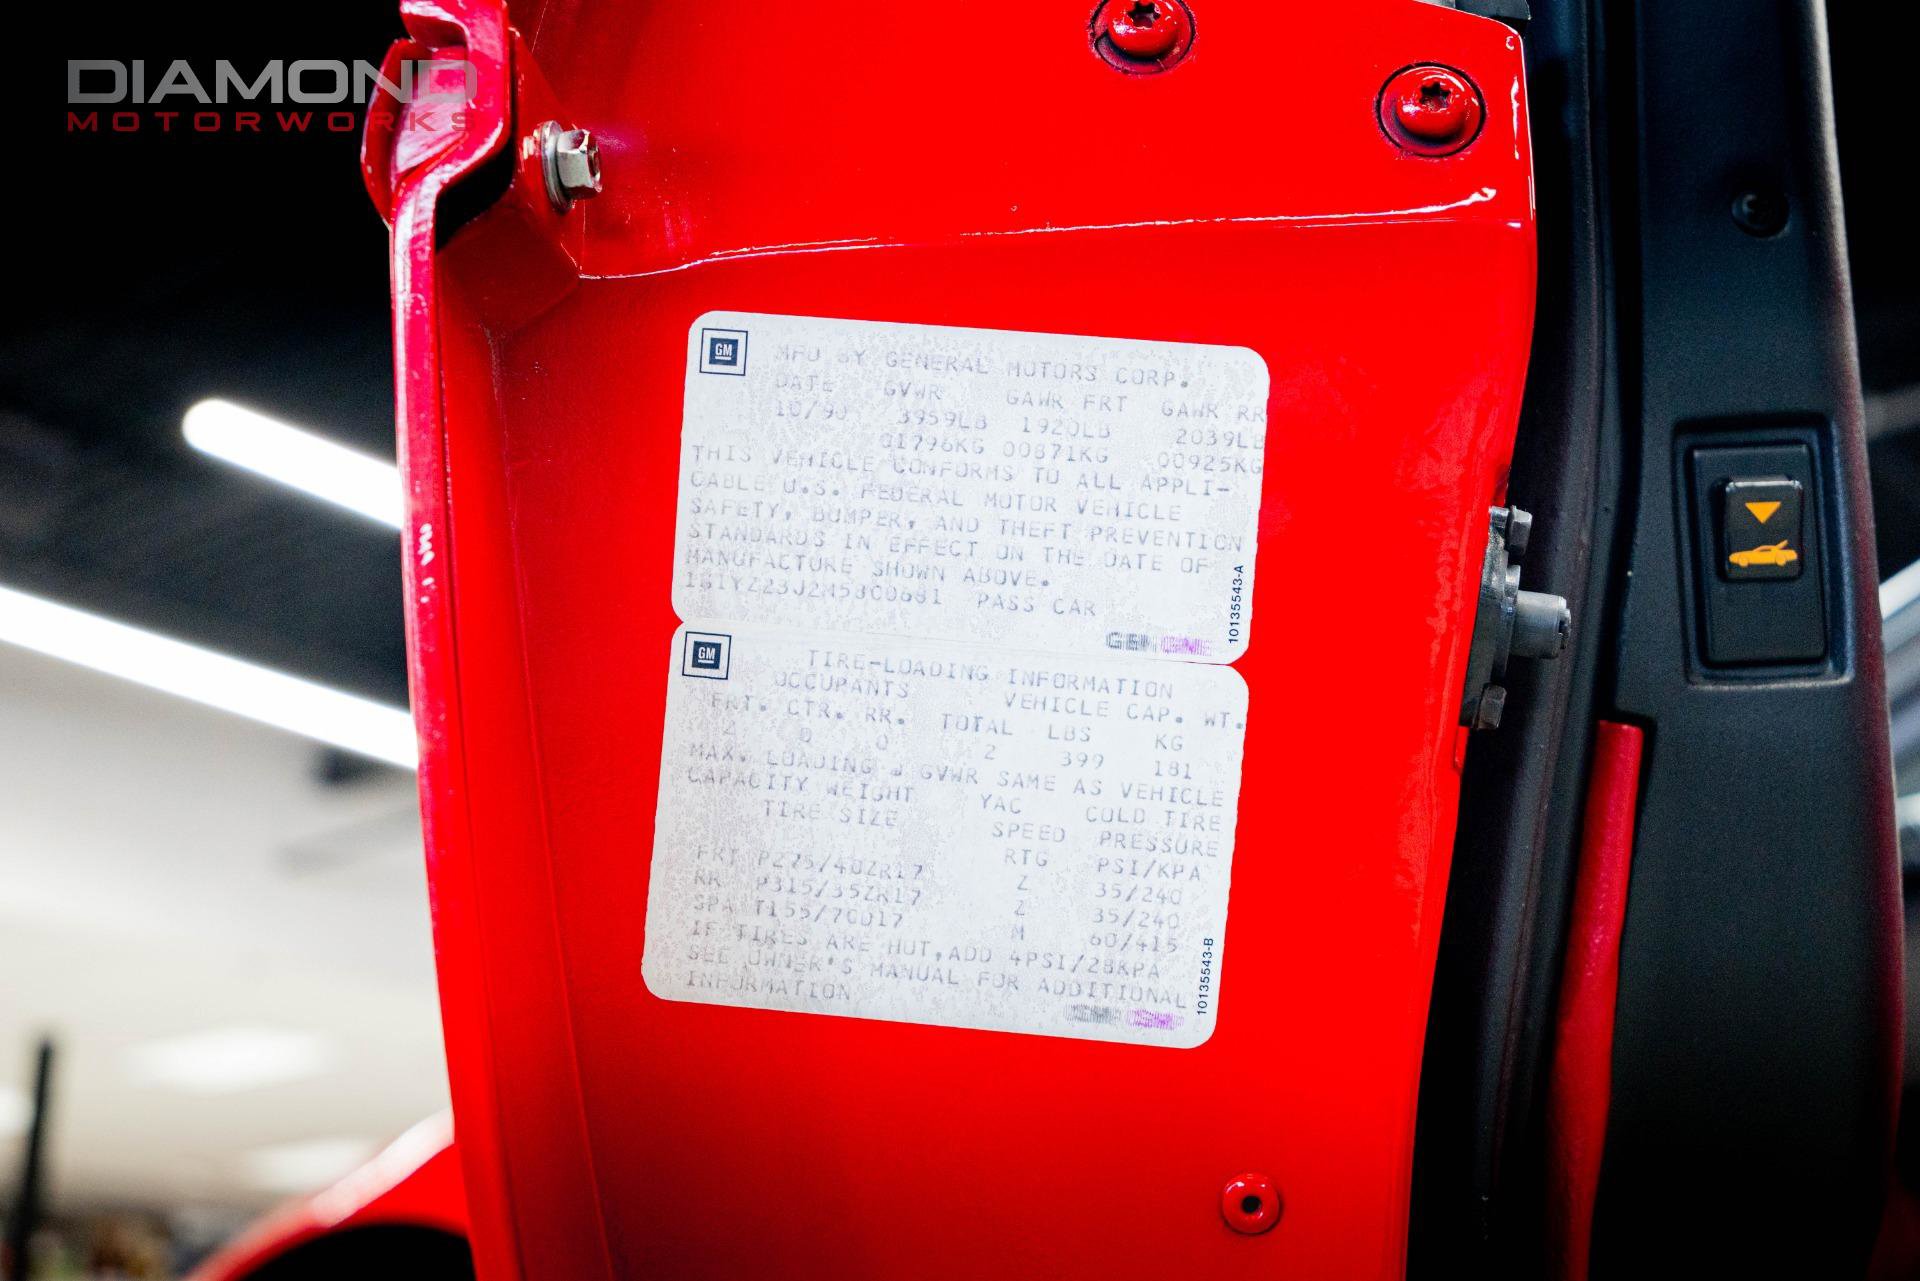 DIAMOND
MOTORWORKS
GM
MFD BY GENERAL MOTORS CORP.
DATE GVWR GAWR FRT GAWR RR
10/90 3959LB 1920LB 2039LB
01796KG 00871KG 00925KG
THIS VEHICLE CONFORMS TO ALL APPLI-
CABLE U.S. FEDERAL MOTOR VEHICLE
SAFETY, BUMPER, AND THEFT PREVENTION
STANDARDS IN EFFECT ON THE DATE OF
MANUFACTURE SHOWN ABOVE.
1G1YZ23J2M5800681 PASS CAR
10135543-A
GM
TIRE-LOADING INFORMATION
OCCUPANTS VEHICLE CAP. WT.
FRT. CTR. RR. TOTAL LBS KG
2 0 0 2 399 181
MAX. LOADING @ GVWR SAME AS VEHICLE
CAPACITY WEIGHT YAC COLD TIRE
TIRE SIZE SPEED PRESSURE
RTG PSI/KPA
FRT P275/40ZR17 Z 35/240
RR P315/35ZR17 Z 35/240
SPA T155/70D17 M 60/415
IF TIRES ARE HOT, ADD 4PSI/28KPA
SEE OWNER'S MANUAL FOR ADDITIONAL
INFORMATION
10135543-B